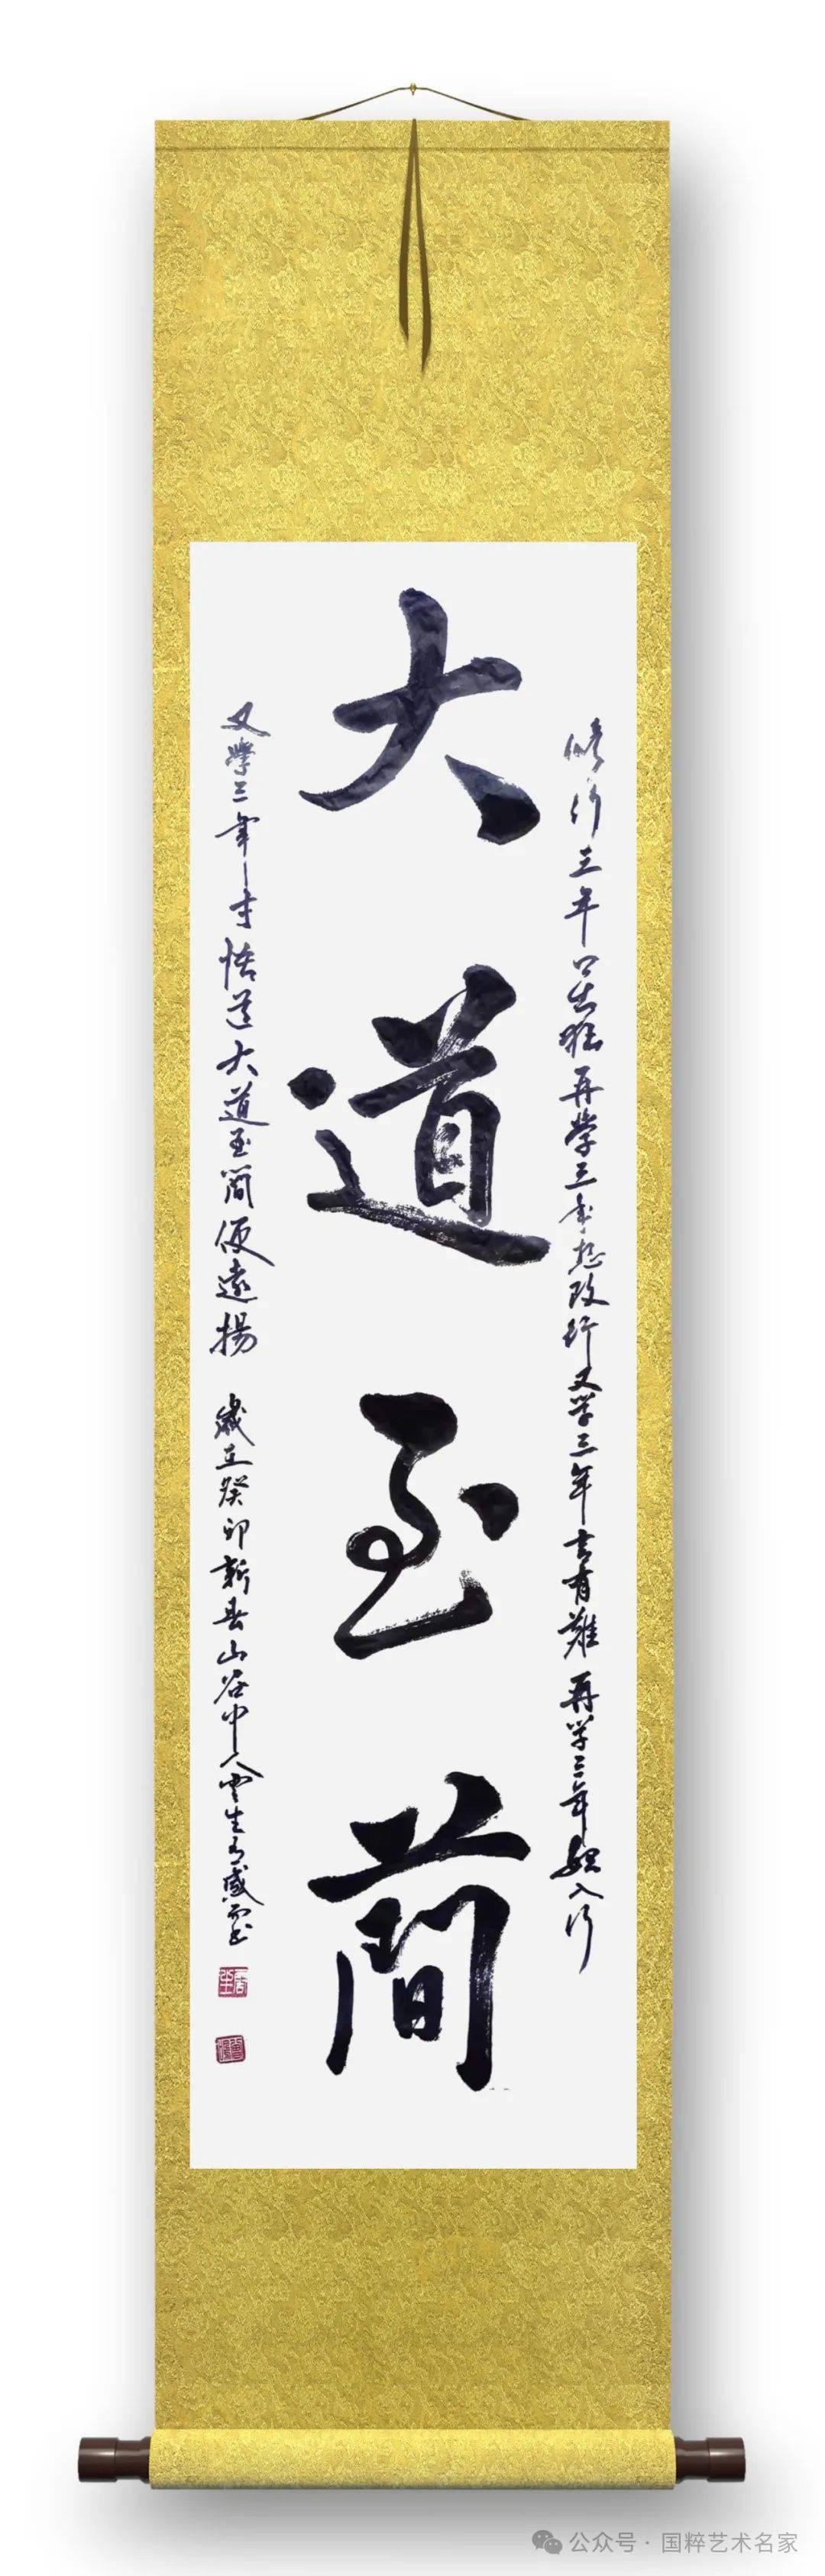 修行三年口出狂再学三年想改行又学三年去有难再学三年入行
大道至簡
又學三年才悟道大道至简便遠揚
歲在癸卯新春山谷中人雲生有感而書
公众号·国粹艺术名家